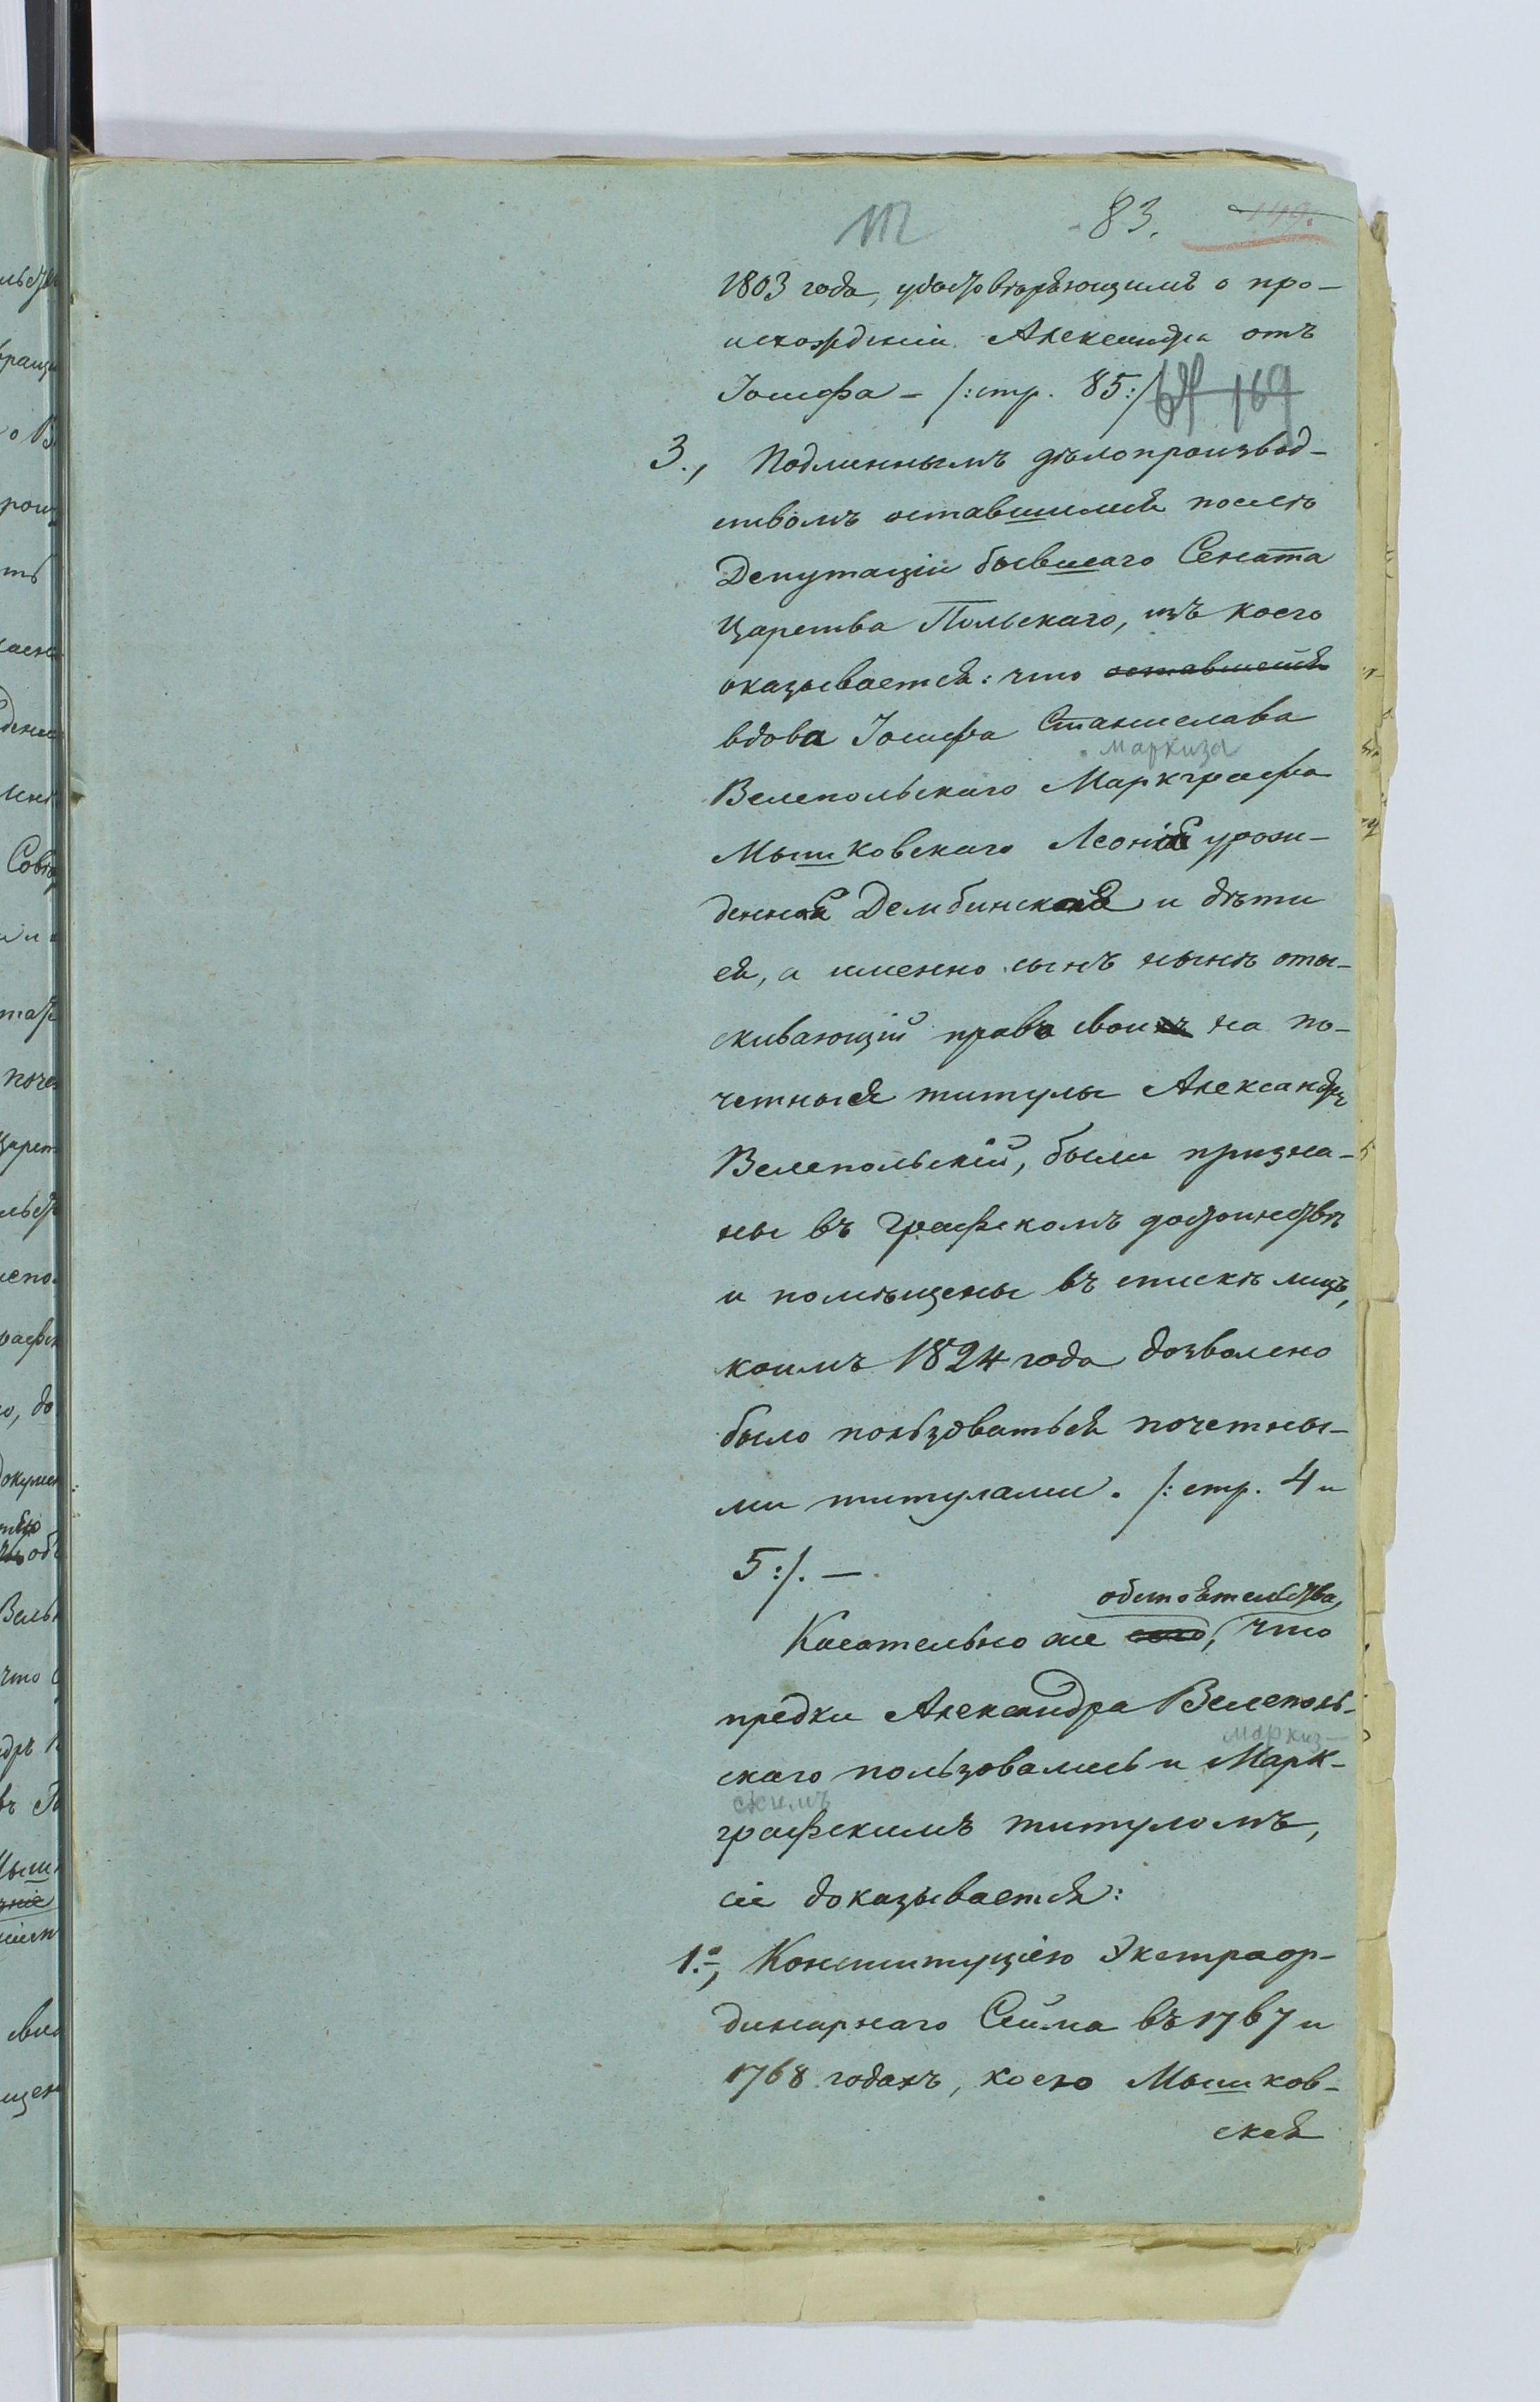 83. 149.
1803 года, удостовѣряющимъ о про-
исхожденіи Александра отъ
Іосифа - /:стр. 85:/ 169
3., Подлиннымъ дѣлопроизвод-
ствомъ оставшимся послѣ
Депутаціи бывшаго Сената
Царства Польскаго, изъ коего
оказывается: что оставшейся
вдова Іосифа Станислава
маркиза
Велепольскаго Маркграфа
Мышковскаго Леонія урож-
денная Дембинская и дѣти
ея, а именно сынъ нынѣ оты-
скивающій права свои на по-
четныя титулы Александръ
Велепольскій, были призна-
ны въ Графскомъ достоинствѣ
и помѣщены въ спискѣ лицъ,
коимъ 1824 года дозволено
было пользоваться почетны-
ми титулами. /:стр. 4 и
5:/. —
обстоятельства,
Касательно же сего, что
предки Александра Велеполь-
маркиз-
скаго пользовались и Марк-
скимъ
графскимъ титуломъ,
сіе доказывается:
1.о, Конституціею Экстраор-
динарнаго Сейма въ 1767 и
1768 годахъ, коею Мышков-
ская